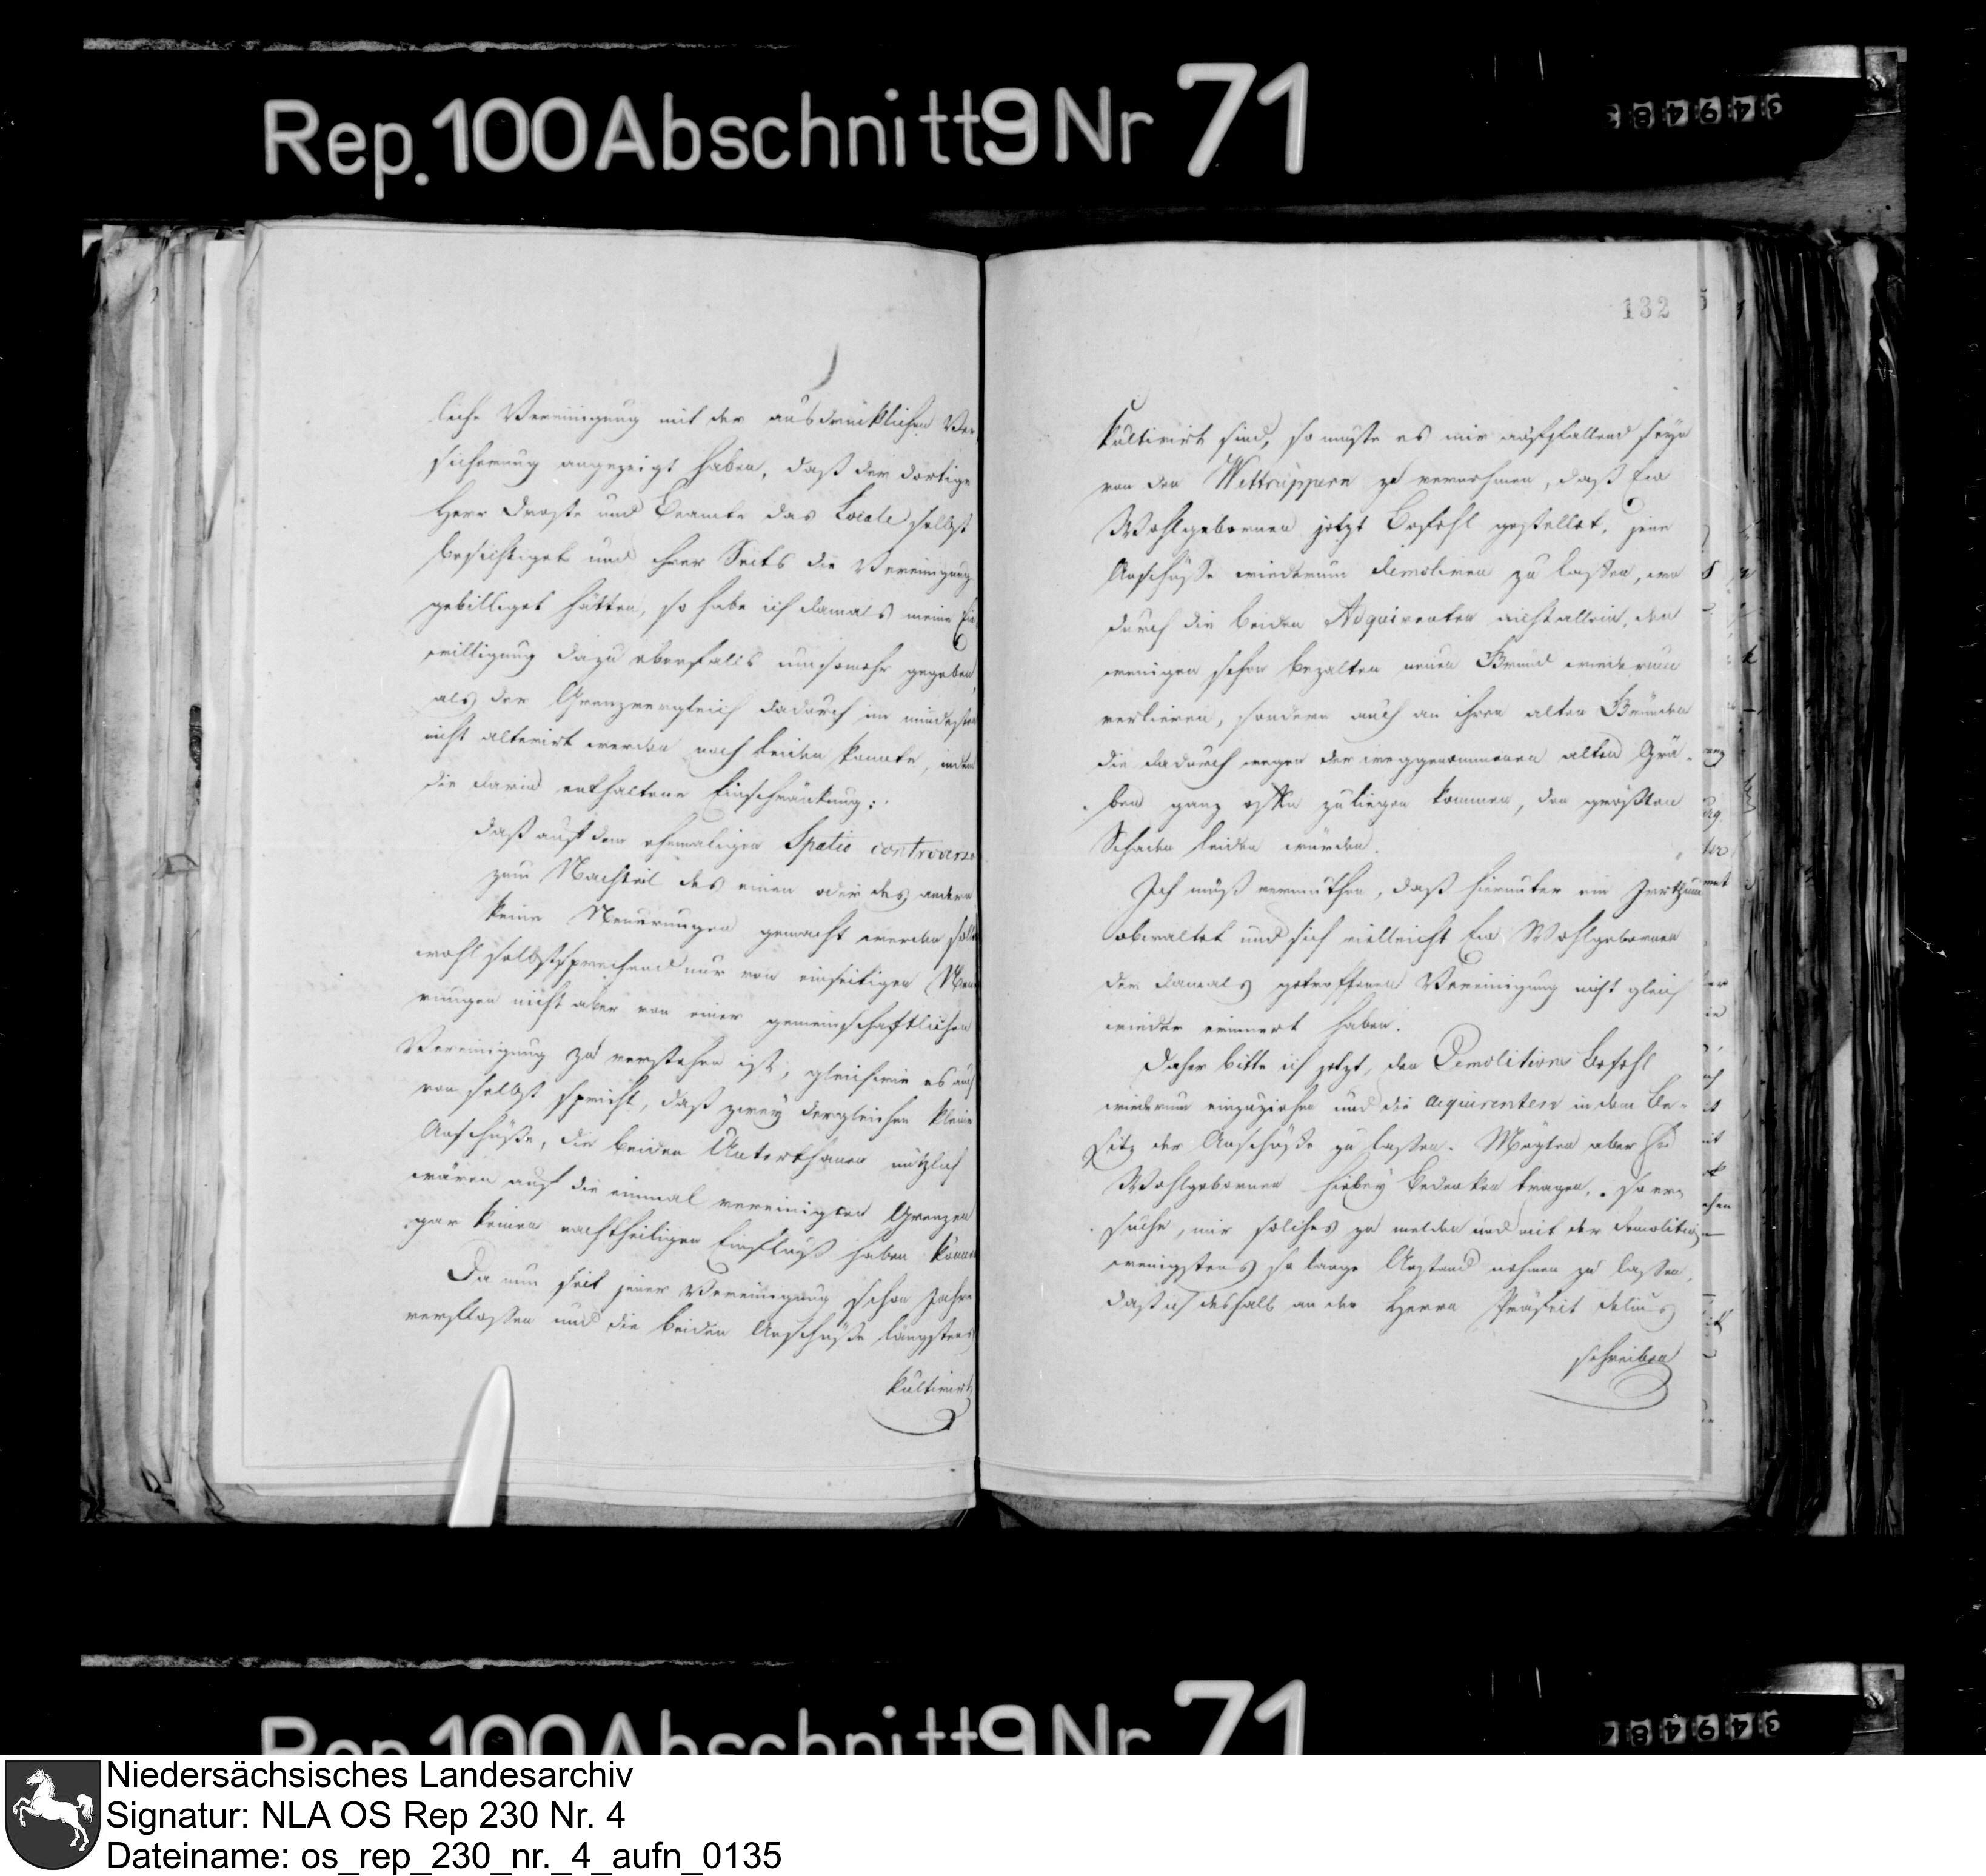 Rep. 100 Abschnitt 9 Nr 71
34948
liche Vereinigung mit der ausdrücklichen Ver-
sicherung angezeigt haben, daß der dortige
Herr Droste und Beamte das Locale selbst
besichtiget und ihrer Seits die Vereinigung
gebilliget hätten, so habe ich damals meine Ein
willigung dazu ebenfalls umsomehr gegeben,
als der Grenzvergleich dadurch im mindesten
nicht alterirt werden noch leiden konnte, indem
die darin enthaltene Einschränkung:
daß auf dem ehemaligen Spatio controverso
zum Nachteil des einen oder des andern
keine Neuerungen gemacht werden
wohl selbstsprechend nur von einseitigen Neue
rungen nicht aber von einer gemeinschaftlichen
Vereinigung zu verstehen ist, gleichwie es auch
von selbst spricht, daß zwey dergleichen kleine
Anschüße, die beiden Unterthanen nützlich
wären auf die einmal vereinigten Grenzen
gar keinen nachtheiligen Einfluß haben können
Da nun seit jener Vereinigung schon Jahre
verflossen und die beiden Anschüße längstens
kultivirt
132
kultivirt sind, so mußte es mir auffallend seyn
von den Wettrüppern zu vernehmen, daß Ew
Wohlgebornen jetzt Befehl gestellet, jene
Anschüsse wiederum demoliren zu lassen, wo
durch die beiden Adquirenten nicht allein, den
wenigen schon bezalten neuen Grund wiederum
verlieren, sondern auch an ihren alten Gründen
die dadurch wegen der weggenommenen alten Grä-
ben ganz offen zuliegen kommen, den größten
Schaden leiden würden.
Ich muß vermuthen, daß hierunter ein Irrthum
obwaltet und sich vielleicht Ew Wohlgebornen
der damals getroffenen Vereinigung nicht gleich
wieder erinnert haben.
Daher bitte ich jetzt, den Demolitions Befehl
wiederum einzuziehen und die acquirenten in dem Be-
sitz der Anschüße zu lassen. Mögten aber Ew
Wohlgebornen hiebey Bedenken tragen, so er-
suche, mir solches zu melden und mit der Demolition
wenigstens so lange Anstand nehmen zu lassen,
daß ich deshalb an den Herrn Präfeit Delius
schreiben
Rep. 100 Abschnitt 9 Nr 71
34948
Niedersächsisches Landesarchiv
Signatur: NLA OS Rep 230 Nr. 4
Dateiname: os_rep_230_nr._4_aufn_0135